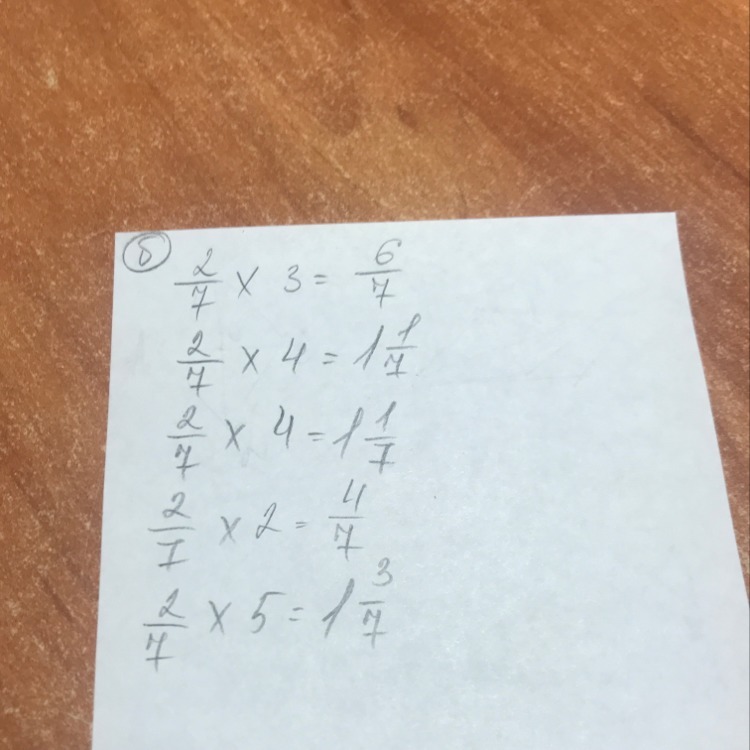 б 2/7 × 3 = 6/7
2/7 × 4 = 1 1/7
2/7 × 4 = 1 1/7
2/7 × 2 = 4/7
2/7 × 5 = 1 3/7